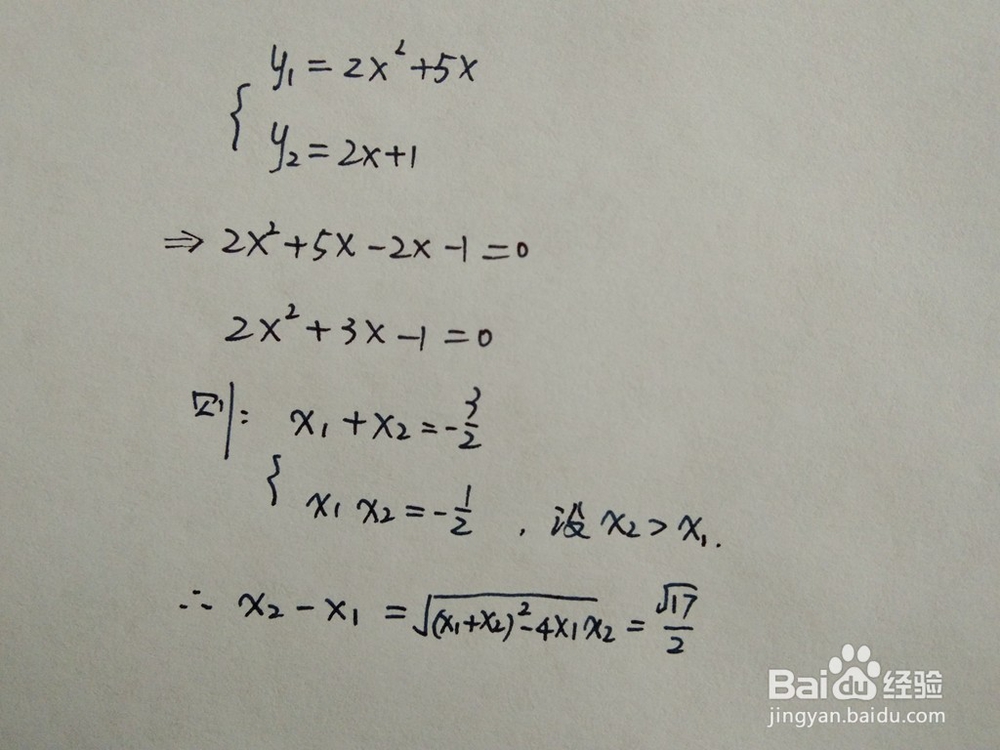 { y₁ = 2x² + 5x
y₂ = 2x + 1
⇒ 2x² + 5x - 2x - 1 = 0
2x² + 3x - 1 = 0
则: { x₁ + x₂ = -3/2
x₁ x₂ = -1/2 , 设 x₂ > x₁.
∴ x₂ - x₁ = √((x₁+x₂)² - 4x₁x₂) = √17/2
Baidu 经验
jingyan.baidu.com